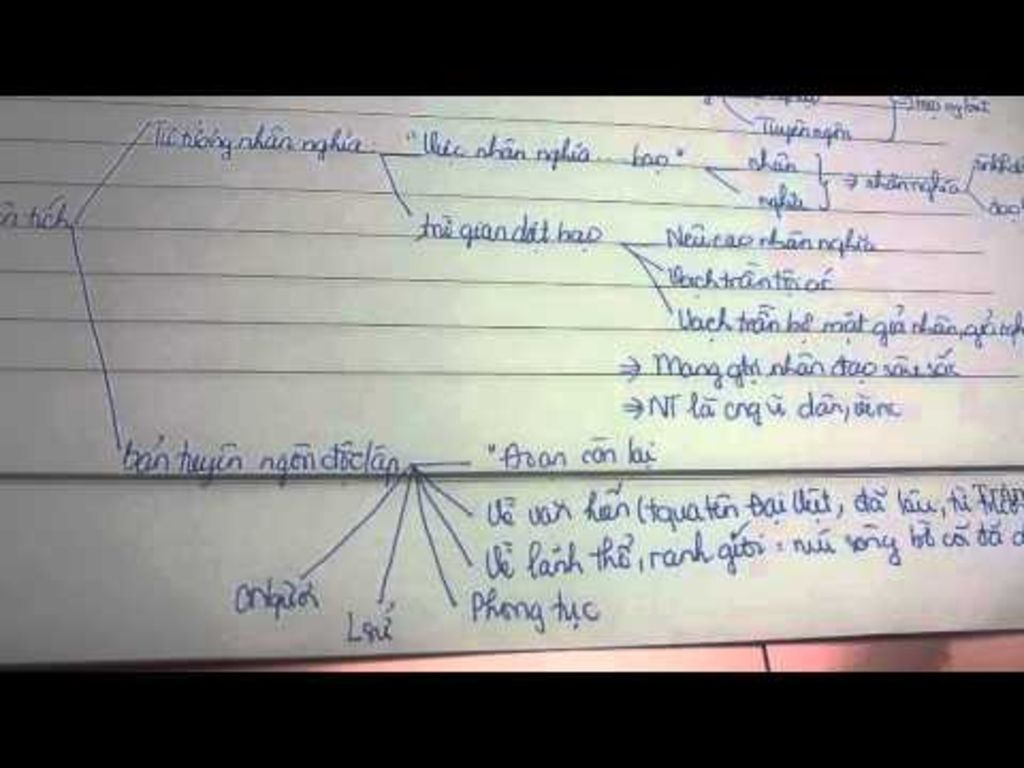 Tuyên ngôn
Tư tưởng nhân nghĩa "Việc nhân nghĩa ... bạo" nhân
nghĩa ⇒ nhân nghĩa
ân tích
trừ gian diệt bạo Nêu cao nhân nghĩa
Vạch trần tội ác
Vạch trần bộ mặt giả nhân, giả
⇒ Mang gtrị nhân đạo sâu sắc
⇒ NT là cng vì dân,
bản tuyên ngôn độc lập "Đoạn còn lại
Về văn hiến (tqua tên Đại Việt, đã lâu, từ
Về lãnh thổ, ranh giới: núi sông bờ cõi đã
Phong tục
Lsử